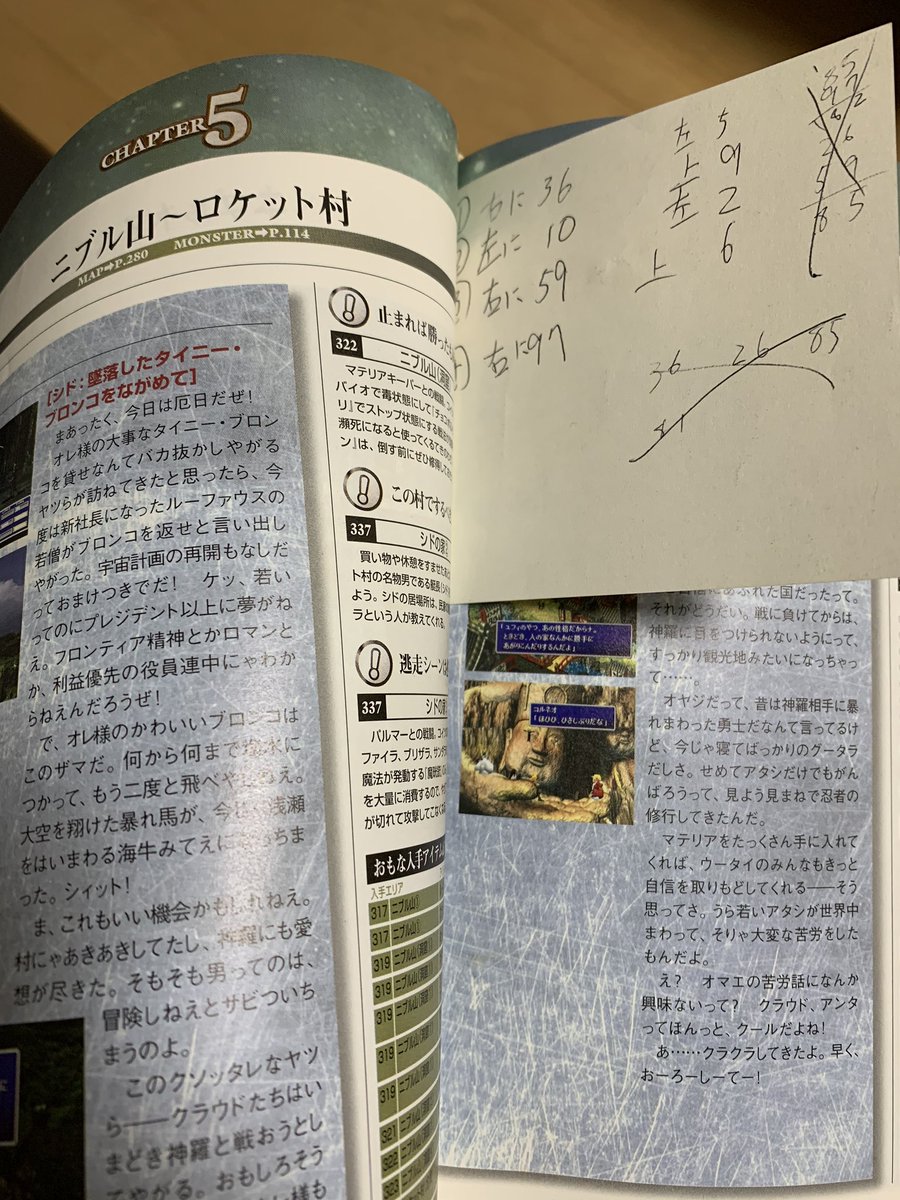 CHAPTER5
ニブル山～ロケット村
MAP➡P.280 MONSTER➡P.114
[シド：墜落したタイニー・
ブロンコをながめて]
まあったく、今日は厄日だぜ！
オレ様の大事なタイニー・ブロン
コを貸せなんてバカ抜かしやがる
ヤツらが訪ねてきたと思ったら、今
度は新社長になったルーファウスの
若僧がブロンコを返せと言い出し
やがった。宇宙計画の再開もなしだ
っておまけつきでだ！　ケッ、若い
ってのにプレジデント以上に夢がね
え。フロンティア精神とかロマンと
か、利益優先の役員連中にゃわか
らねえんだろうぜ！
で、オレ様のかわいいブロンコは
このザマだ。何から何まで塩水に
つかって、もう二度と飛べやしねえ。
大空を翔けた暴れ馬が、今じゃ浅瀬
をはいまわる海牛みてえに
った。シィット！
ま、これもいい機会かもしれねえ。
村にゃあきあきしてたし、神羅にも愛
想が尽きた。そもそも男ってのは、
冒険しねえとサビついち
まうのよ。
このクソッタレなヤツ
ら――クラウドたちはい
まどき神羅と戦おうとし
てやがる。おもしろそう
止まれば勝った
322 ニブル山
マテリアキーパーとの戦闘。
バイオで毒状態にして『チョコボ
リ』でストップ状態にする
瀕死になると使ってくる
ン』は、倒す前にぜひ修得して
この村です
337 シドの家
買い物や休憩をすませた
ト村の名物男である艇長
よう。シドの居場所は、
ラという人が教えてくれる。
逃走シーンは
337 シドの家
パルマーとの戦闘。
ファイラ、ブリザラ、サンダ
魔法が発動する
を大量に消費するので、
が切れて攻撃してこなく
おもな入手アイテム
入手エリア
317 ニブル山
317 ニブル山
319 ニブル山
319 ニブル山
319 ニブル山
319 ニブル山
319 ニブル山
321 ニブル山
322 ニブル山
323 ニブル山
右に 36
左に 10
右に 59
右に 97
左 5
上 9
左 2
上 6
36 26 85
にあふれた国だったって。
それがどうだい。戦に負けてからは、
神羅に目をつけられないようにって、
すっかり観光地みたいになっちゃっ
て……。
オヤジだって、昔は神羅相手に暴
れまわった勇士だなんて言ってるけ
ど、今じゃ寝てばっかりのグータラ
だしさ。せめてアタシだけでもがん
ばろうって、見よう見まねで忍者の
修行してきたんだ。
マテリアをたくさん手に入れて
くれば、ウータイのみんなもきっと
自信を取りもどしてくれる――そう
思ってさ。うら若いアタシが世界中
まわって、そりゃ大変な苦労をした
もんだよ。
え？　オマエの苦労話になんか
興味ないって？　クラウド、アンタ
ってほんっと、クールだよね！
あ……クラクラしてきたよ。早く、
おーろーしーてー！
「ユフィのやつ、あの性格だからナ。
ときどき、人の家なんかに勝手に
あがりこんだりするんだよ」
コルネオ
「ほひひ、ひさしぶりだな」